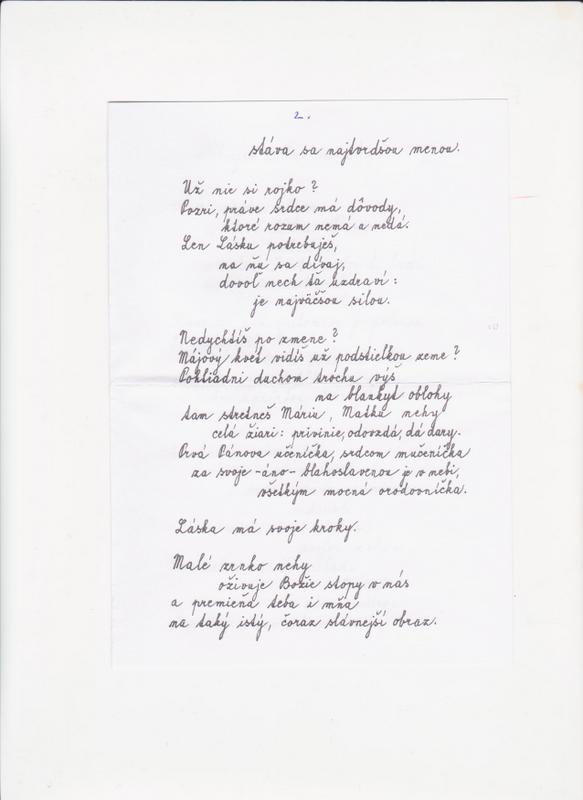 2.
stáva sa najtvrdšou menou.
Už nie si rojko?
Pozri, práve srdce má dôvody,
ktoré rozum nemá a nedá.
Len Lásku potrebuješ,
na ňu sa dívaj,
dovoľ nech ťa uzdraví:
je najväčšou silou.
Nedychtíš po zmene?
Májový kvet vidíš už podstielkou zeme?
Pohliadni duchom trochu výš
na blankyt oblohy
tam stretneš Máriu, Matku nehy
celá žiari: privinie, odovzdá, dá dary.
Prvá Pánova učeníčka, srdcom mučeníčka
za svoje -áno- blahoslavenou je v nebi,
všetkým mocná orodovníčka.
Láska má svoje kroky.
Malé zrnko nehy
oživuje Božie stopy v nás
a premieňa teba i mňa
na taký istý, čoraz slávnejší obraz.